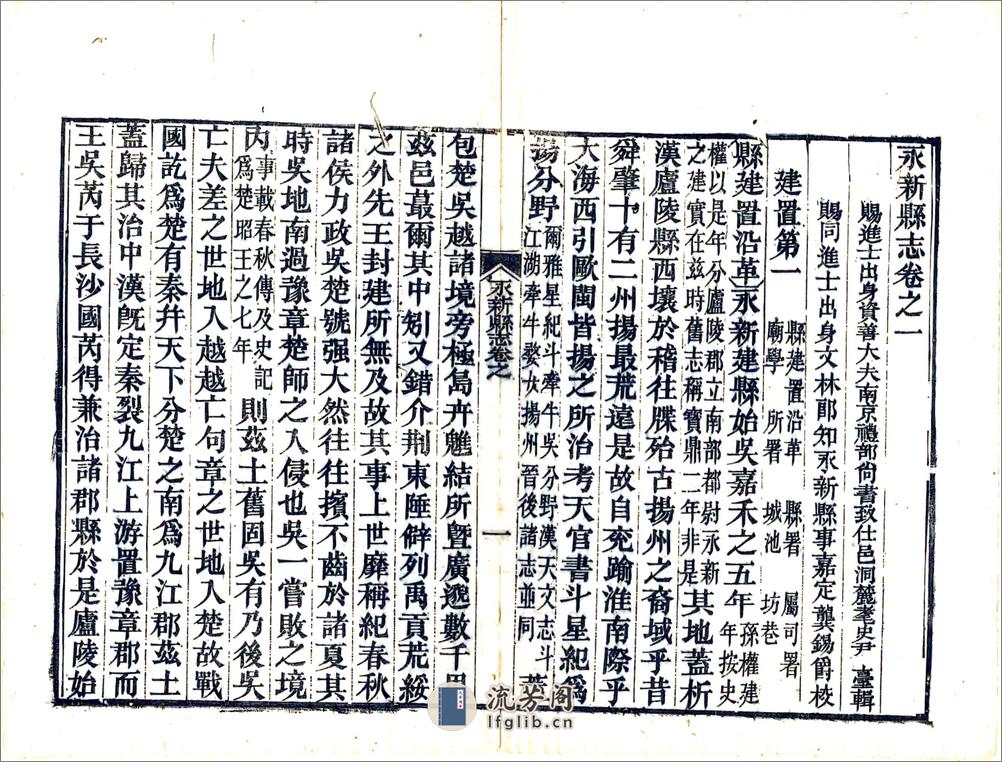 永新縣志卷之一
賜進士出身資善大夫南京禮部尚書致仕邑洞麓耄史尹 臺輯
賜同進士出身文林郎知永新縣事嘉定龔錫爵校
建置第一 縣建置沿革 縣署 屬司署
廟學 所署 城池 坊巷
縣建置沿革永新建縣始吳嘉禾之五年孫權建年按史
權以是年分廬陵郡立南部都尉永新
之建實在茲時舊志稱寶鼎二年非是其地蓋析
漢廬陵縣西壤於稽往牒殆古揚州之裔域乎昔
舜肇十有二州揚最荒遠是故自兖踰淮南際乎
大海西引歐閩皆揚之所治考天官書斗星紀爲
揚分野爾雅星紀斗牽牛吳分野漢天文志斗
江湖牽牛婺女揚州晉後諸志並同
永新縣志卷之
一
包楚吳越諸境旁極島卉魋結所曁廣邈數千里
茲邑蕞爾其中矧又錯介荆東陲僻列禹貢荒綏
之外先王封建所無及故其事上世靡稱紀春秋
諸侯力政吳楚號强大然往往擯不齒於諸夏其
時吳地南過豫章楚師之入侵也吳一嘗敗之境
内事載春秋傳及史記
爲楚昭王之七年則茲土舊固吳有乃後吳
亡夫差之世地入越越亡句章之世地入楚故戰
國訖爲楚有秦并天下分楚之南爲九江郡茲土
蓋歸其治中漢旣定秦裂九江上游置豫章郡而
王吳芮于長沙國芮得兼治諸郡縣於是廬陵始
流芳阁
lfglib.cn